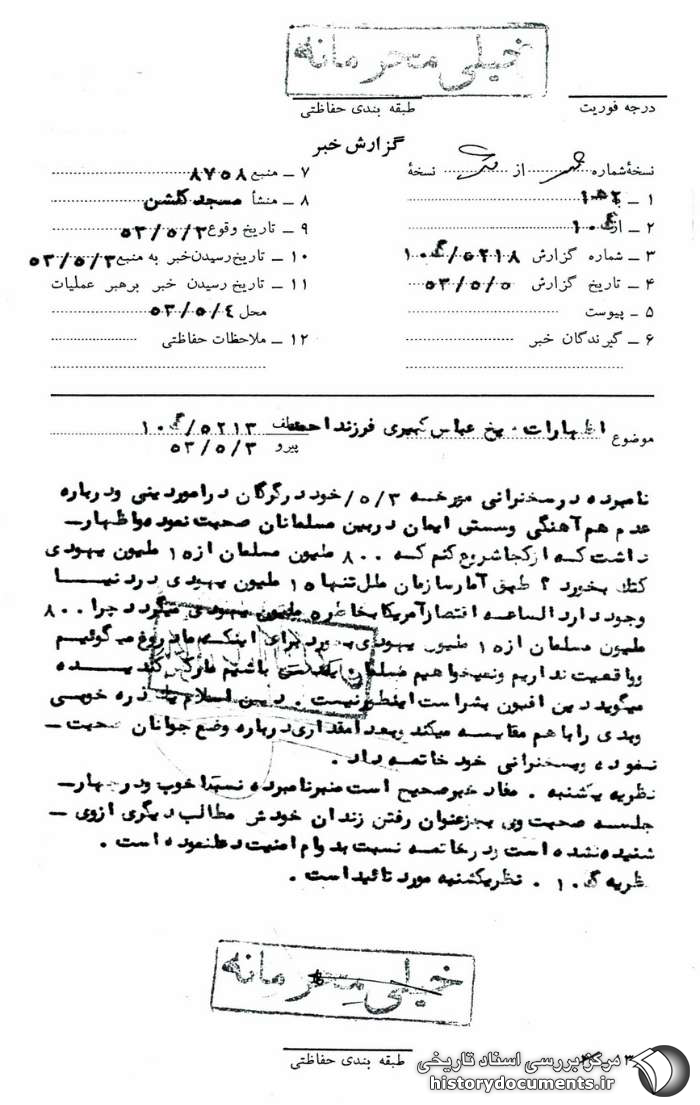 خیلی محرمانه
درجه فوریت
طبقه بندی حفاظتی
گزارش خبر
نسخهٔ شماره از نسخهٔ
۱ ـ به
۲ ـ از
۳ ـ شماره گزارش ۵۲۱۸/
۴ ـ تاریخ گزارش ۵۳/۵/۵
۵ ـ پیوست
۶ ـ گیرندگان خبر
۷ ـ منبع ۸۷۵۸
۸ ـ منشأ مسجد گلشن
۹ ـ تاریخ وقوع ۵۳/۵/۳
۱۰ ـ تاریخ رسیدن خبر به منبع ۵۳/۵/۳
۱۱ ـ تاریخ رسیدن خبر برهبر عملیات
محل ۵۳/۵/٤
۱۲ ـ ملاحظات حفاظتی
موضوع اظهارات شیخ عباس کبیری فرزند احمد
عطف ۵۲۱۳/
پیرو ۵۳/۵/۳
نامبرده در سخنرانی مورخه ۵/۳/ خود در گرگان در امور دینی و درباره
عدم هم آهنگی و سستی ایمان در بین مسلمانان صحبت نموده و اظهار ـ
داشت که از کجا شروع کنم که ۸۰۰ ملیون مسلمان از ۱۵ ملیون یهودی
کتک بخورد ؟ طبق آمار سازمان ملل تنها ۱۵ ملیون یهودی در دنیا
وجود دارد الساعه اقتصار آمریکا بخاطر ملیون یهودی میگردد چرا ۸۰۰
ملیون مسلمان از ۱۵ ملیون یهودی بخورد برای اینکه ما دروغ میگوئیم
و واقعیت نداریم و نمیخواهیم مسلمان باشیم مارکس
میگوید دین افیون بشر است اینطور نیست . دین اسلام یک ذره خوبی
و بدی را با هم مقایسه میکند و بعد مقداری درباره وضع جوانان صحبت ـ
نموده و بسخنرانی خود خاتمه داد .
نظریه یکشنبه . مفاد خبر صحیح است منبر نامبرده نسبتاً خوب و در چهار ـ
جلسه صحبت وی بجز عنوان رفتن زندان خودش مطالب دیگری از وی ـ
شنیده نشده است و در خاتمه نسبت بدوام امنیت دعا نموده است .
نظریه . نظر یکشنبه مورد تائید است .
خیلی محرمانه
طبقه بندی حفاظتی
مرکز بررسی اسناد تاریخی
historydocuments.ir